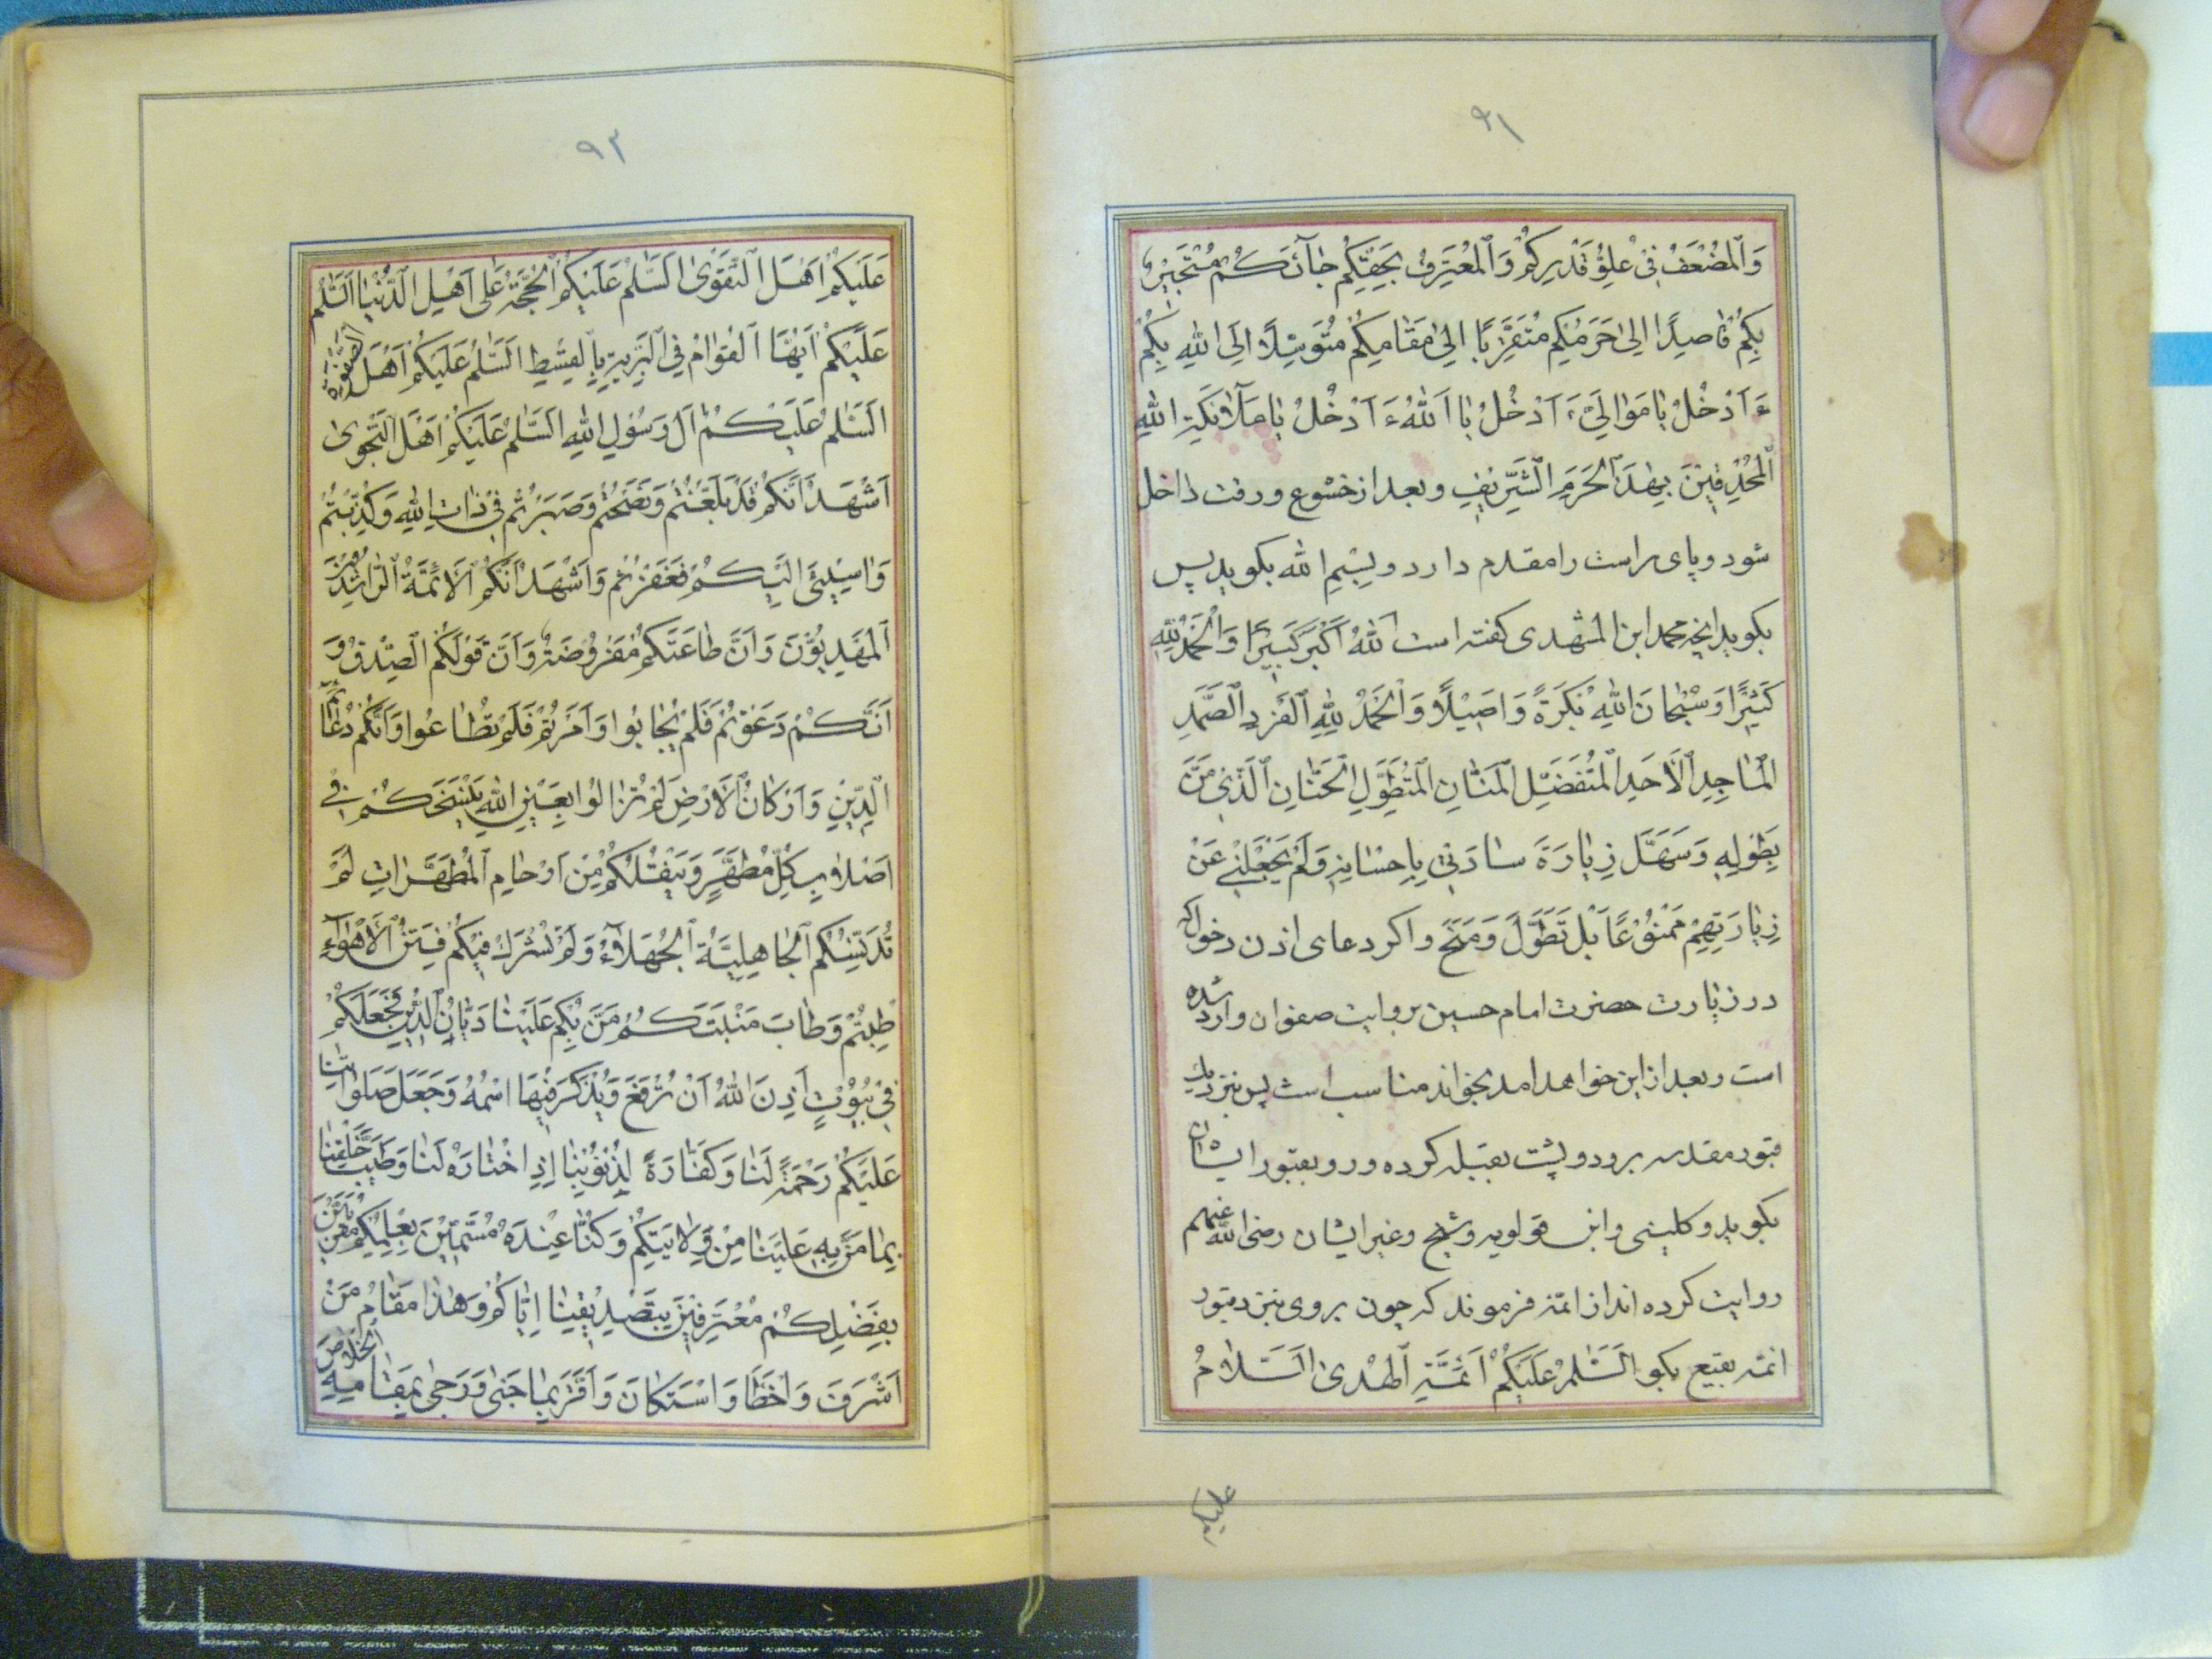 ٩١
وَالْمُضْعَفُ فِي عُلُوِّ قَدْرِكُمْ وَالْمُعْتَرِفُ بِحَقِّكُمْ جٰآئَكُمْ مُسْتَجِيرًا
بِكُمْ قٰاصِدًا اِلىٰ حَرَمِكُمْ مُتَقَرِّبًا اِلىٰ مَقٰامِكُمْ مُتَوَسِّلًا اِلَى اللهِ بِكُمْ
ءَاَدْخُلُ يٰا مَوٰالِيَّ ءَاَدْخُلُ يٰا اَللهُ ءَاَدْخُلُ يٰا مَلآئِكَةَ اللهِ
الْمُحْدِقِينَ بِهٰذَا الْحَرَمِ الشَّرِيفِ وبعد از خشوع ورقت داخل
شود وپای راست را مقدم دارد وبِسْمِ الله بکوید پس
بکوید انچه محمد ابن المشهدی کفته است اَللهُ اَكْبَرُ كَبِيرًا وَالْحَمْدُ لِلّٰهِ
كَثِيرًا وَسُبْحٰانَ اللهِ بُكْرَةً وَاَصِيلًا وَالْحَمْدُ لِلّٰهِ الْفَرْدِ الصَّمَدِ
الْمٰاجِدِ الْاَحَدِ الْمُتَفَضِّلِ الْمَنّٰانِ الْمُتَطَوِّلِ الْحَنّٰانِ الَّذِي مَنَّ
بِطَوْلِهِ وَسَهَّلَ زِيٰارَةَ سٰادَتِي بِاِحْسٰانِهِ وَلَمْ يَجْعَلْنِي عَنْ
زِيٰارَتِهِمْ مَمْنُوعًا بَلْ تَطَوَّلَ وَمَنَحَ واکر دعای اذن دخول که
در زیارت حضرت امام حسین بروایت صفوان وارد شده
است وبعد از این خواهد امد بخواند مناسب است پس نزدیك
قبور مقدسه برود وپشت بقبله کرده ورو بقبور ایشان
بکوید وکلینی وابن قولویه وشیخ وغیر ایشان رضی الله عنهم
روایت کرده اند از ائمه فرموند که چون بروی بنزد قبور
ائمه بقیع بکو اَلسَّلٰمُ عَلَيْكُمْ اَئِمَّةَ الْهُدىٰ اَلسَّلٰامُ
علیکم
٩٢
عَلَيْكُمْ اَهْلَ التَّقْوىٰ اَلسَّلٰمُ عَلَيْكُمُ الْحُجَّةُ عَلىٰ اَهْلِ الدُّنْيٰا اَلسَّلٰمُ
عَلَيْكُمْ اَيُّهَا الْقُوّٰامُ فِي الْبَرِيَّةِ بِالْقِسْطِ اَلسَّلٰمُ عَلَيْكُمْ اَهْلَ الصَّفْوَةِ
اَلسَّلٰمُ عَلَيْكُمْ آلَ رَسُولِ اللهِ اَلسَّلٰمُ عَلَيْكُمْ اَهْلَ النَّجْوىٰ
اَشْهَدُ اَنَّكُمْ قَدْ بَلَّغْتُمْ وَنَصَحْتُمْ وَصَبَرْتُمْ فِي ذٰاتِ اللهِ وَكُذِّبْتُمْ
وَاُسِيئَ اِلَيْكُمْ فَغَفَرْتُمْ وَاَشْهَدُ اَنَّكُمُ الْاَئِمَّةُ الرّٰاشِدُونَ
الْمَهْدِيُّونَ وَاَنَّ طٰاعَتَكُمْ مَفْرُوضَةٌ وَاَنَّ قَوْلَكُمُ الصِّدْقُ وَ
اَنَّكُمْ دَعَوْتُمْ فَلَمْ تُجٰابُوا وَاَمَرْتُمْ فَلَمْ تُطٰاعُوا وَاَنَّكُمْ دَعٰائِمُ
الدِّينِ وَاَرْكٰانُ الْاَرْضِ لَمْ تَزٰالُوا بِعَيْنِ اللهِ يَنْسَخُكُمْ فِي
اَصْلٰابِ كُلِّ مُطَهَّرٍ وَيَنْقُلُكُمْ مِنْ اَرْحٰامِ الْمُطَهَّرٰاتِ لَمْ
تُدَنِّسْكُمُ الْجٰاهِلِيَّةُ الْجُهَلآءُ وَلَمْ تَشْرَكْ فِيكُمْ فِتَنُ الْاَهْوٰآءِ
طِبْتُمْ وَطٰابَ مَنْبَتُكُمْ مَنَّ بِكُمْ عَلَيْنٰا دَيّٰانُ الدِّينِ فَجَعَلَكُمْ
فِي بُيُوتٍ اَذِنَ اللهُ اَنْ تُرْفَعَ وَيُذْكَرَ فِيهَا اسْمُهُ وَجَعَلَ صَلَوٰاتَنٰا
عَلَيْكُمْ رَحْمَةً لَنٰا وَكَفّٰارَةً لِذُنُوبِنٰا اِذِ اخْتٰارَهُ لَنٰا وَطَيَّبَ خَلْقَنٰا
بِمٰا مَنَّ بِهِ عَلَيْنٰا مِنْ وِلٰايَتِكُمْ وَكُنّٰا عِنْدَهُ مُسَمَّيْنَ بِعِلْمِكُمْ مُقِرِّينَ
بِفَضْلِكُمْ مُعْتَرِفِينَ بِتَصْدِيقِنٰا اِيّٰاكُمْ وَهٰذٰا مَقٰامُ مَنْ
اَسْرَفَ وَاَخْطَأَ وَاسْتَكٰانَ وَاَقَرَّ بِمٰا جَنىٰ وَرَجىٰ بِمَقٰامِهِ الْخَلٰاصَ